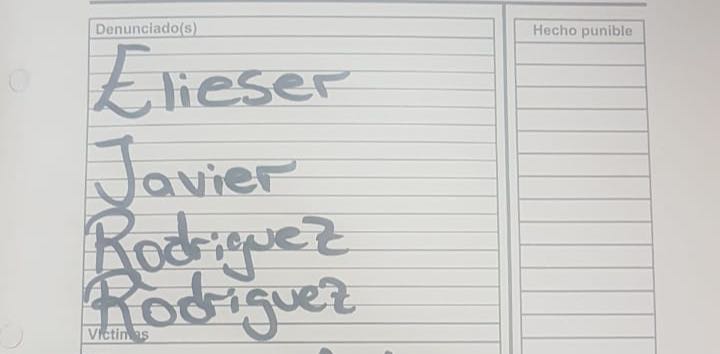 Denunciado(s)
Hecho punible
Elieser
Javier
Rodriguez
Rodriguez
Víctimas